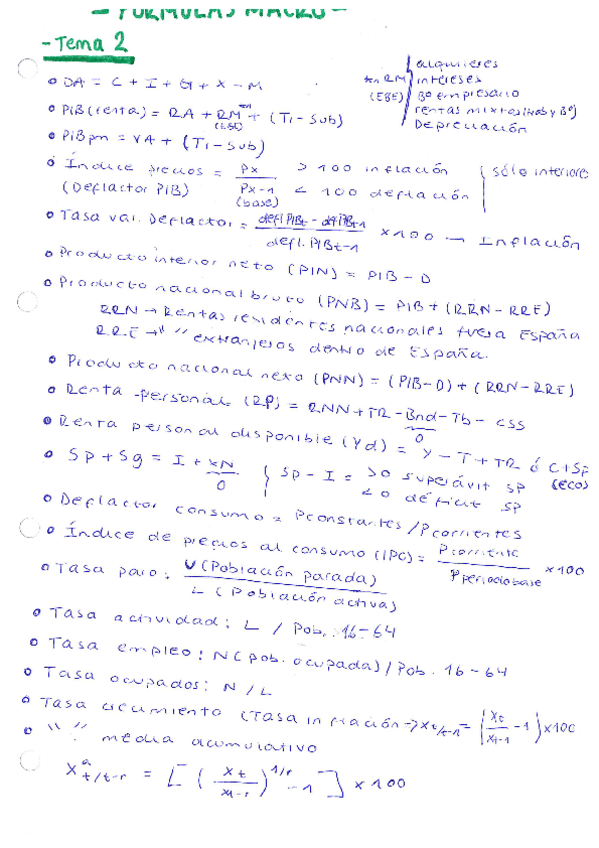 - FORMULAS MACRO -
- Tema 2
o DA = C + I + G + X - M
en RM (EBE) alquileres
intereses
Bº empresario
rentas mixtas (sal y Bº)
Depreciación
o PiB (renta) = RA + RM (EBE) + (Ti - Sub)
o PiBpm = VA + (Ti - Sub)
o Índice precios = Px / Px-1 (base) > 100 inflación
(Deflactor PiB) < 100 deflación
sólo interiores
o Tasa var. Deflactor = defl PIBt - defl PIBt-1 / defl. PIBt-1 x 100 → Inflación
o Producto interior neto (PIN) = PIB - D
o Producto nacional bruto (PNB) = PIB + (RRN - RRE)
RRN → Rentas residentes nacionales fuera España
RRE → " " extranjeros dentro de España.
o Producto nacional neto (PNN) = (PIB - D) + (RRN - RRE)
o Renta personal (RP) = RNN + TR - Bnd - Tb - CSS
0
o Renta personal disponible (Yd) = Y - T + TR ó C + Sp
(ECO)
o Sp + Sg = I + XN
0
Sp - I = > 0 superávit SP
< 0 déficit SP
o Deflactor consumo = Pconstantes / Pcorrientes
o Índice de precios al consumo (IPC) = Pcorriente / Pperiodobase x 100
o Tasa paro: U (Población parada) / L (Población activa)
o Tasa actividad: L / Pob. 16-64
o Tasa empleo: N (pob. ocupada) / Pob. 16-64
o Tasa ocupados: N / L
o Tasa crecimiento (Tasa inflación → Xt/t-1 = (Xt / Xt-1 - 1) x 100
o " " media acumulativo
Xª t/t-r = [ ( Xt / Xt-r )^1/r - 1 ] x 100